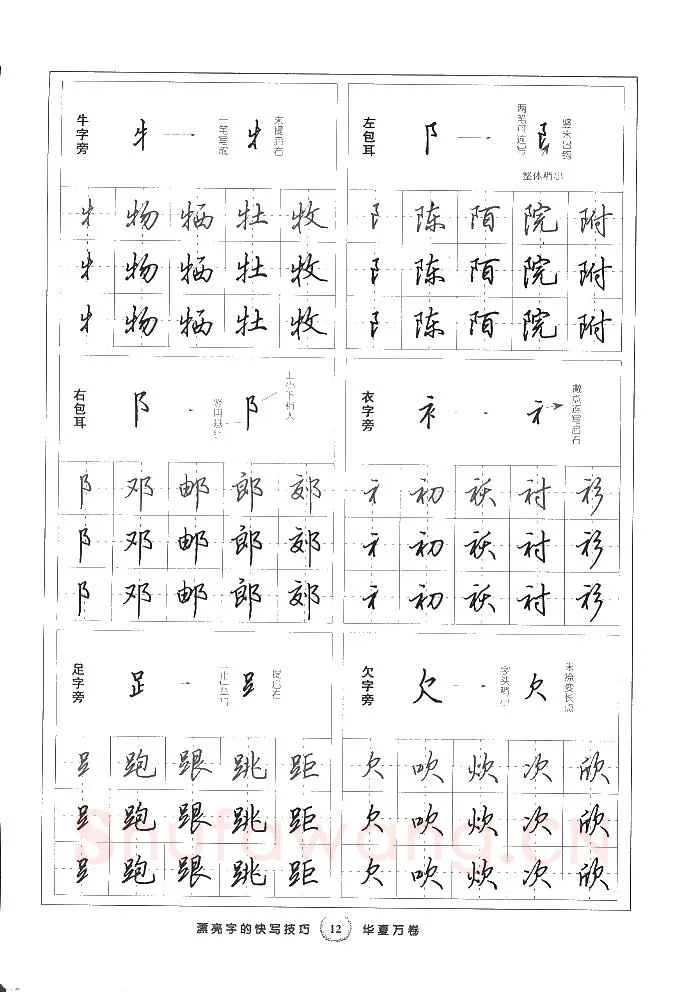 牛字旁 牜 牜 一笔写成 末提启右
牜 物 牺 牡 牧
牜 物 牺 牡 牧
牜 物 牺 牡 牧
左包耳 阝 阝 两笔可连写 竖末回钩 整体稍小
阝 陈 陌 院 附
阝 陈 陌 院 附
阝 陈 陌 院 附
右包耳 阝 阝 竖用悬针 上小下稍大
阝 邓 邮 郎 郊
阝 邓 邮 郎 郊
阝 邓 邮 郎 郊
衣字旁 衤 衤 撇点连写启右
衤 初 袄 衬 衫
衤 初 袄 衬 衫
衤 初 袄 衬 衫
足字旁 𧾷 𧾷 提启右
𧾷 跑 跟 跳 距
𧾷 跑 跟 跳 距
𧾷 跑 跟 跳 距
欠字旁 欠 欠 字头稍小 末捺变长点
欠 吹 炊 次 欣
欠 吹 炊 次 欣
欠 吹 炊 次 欣
Shufawang.CN
漂亮字的快写技巧 12 华夏万卷